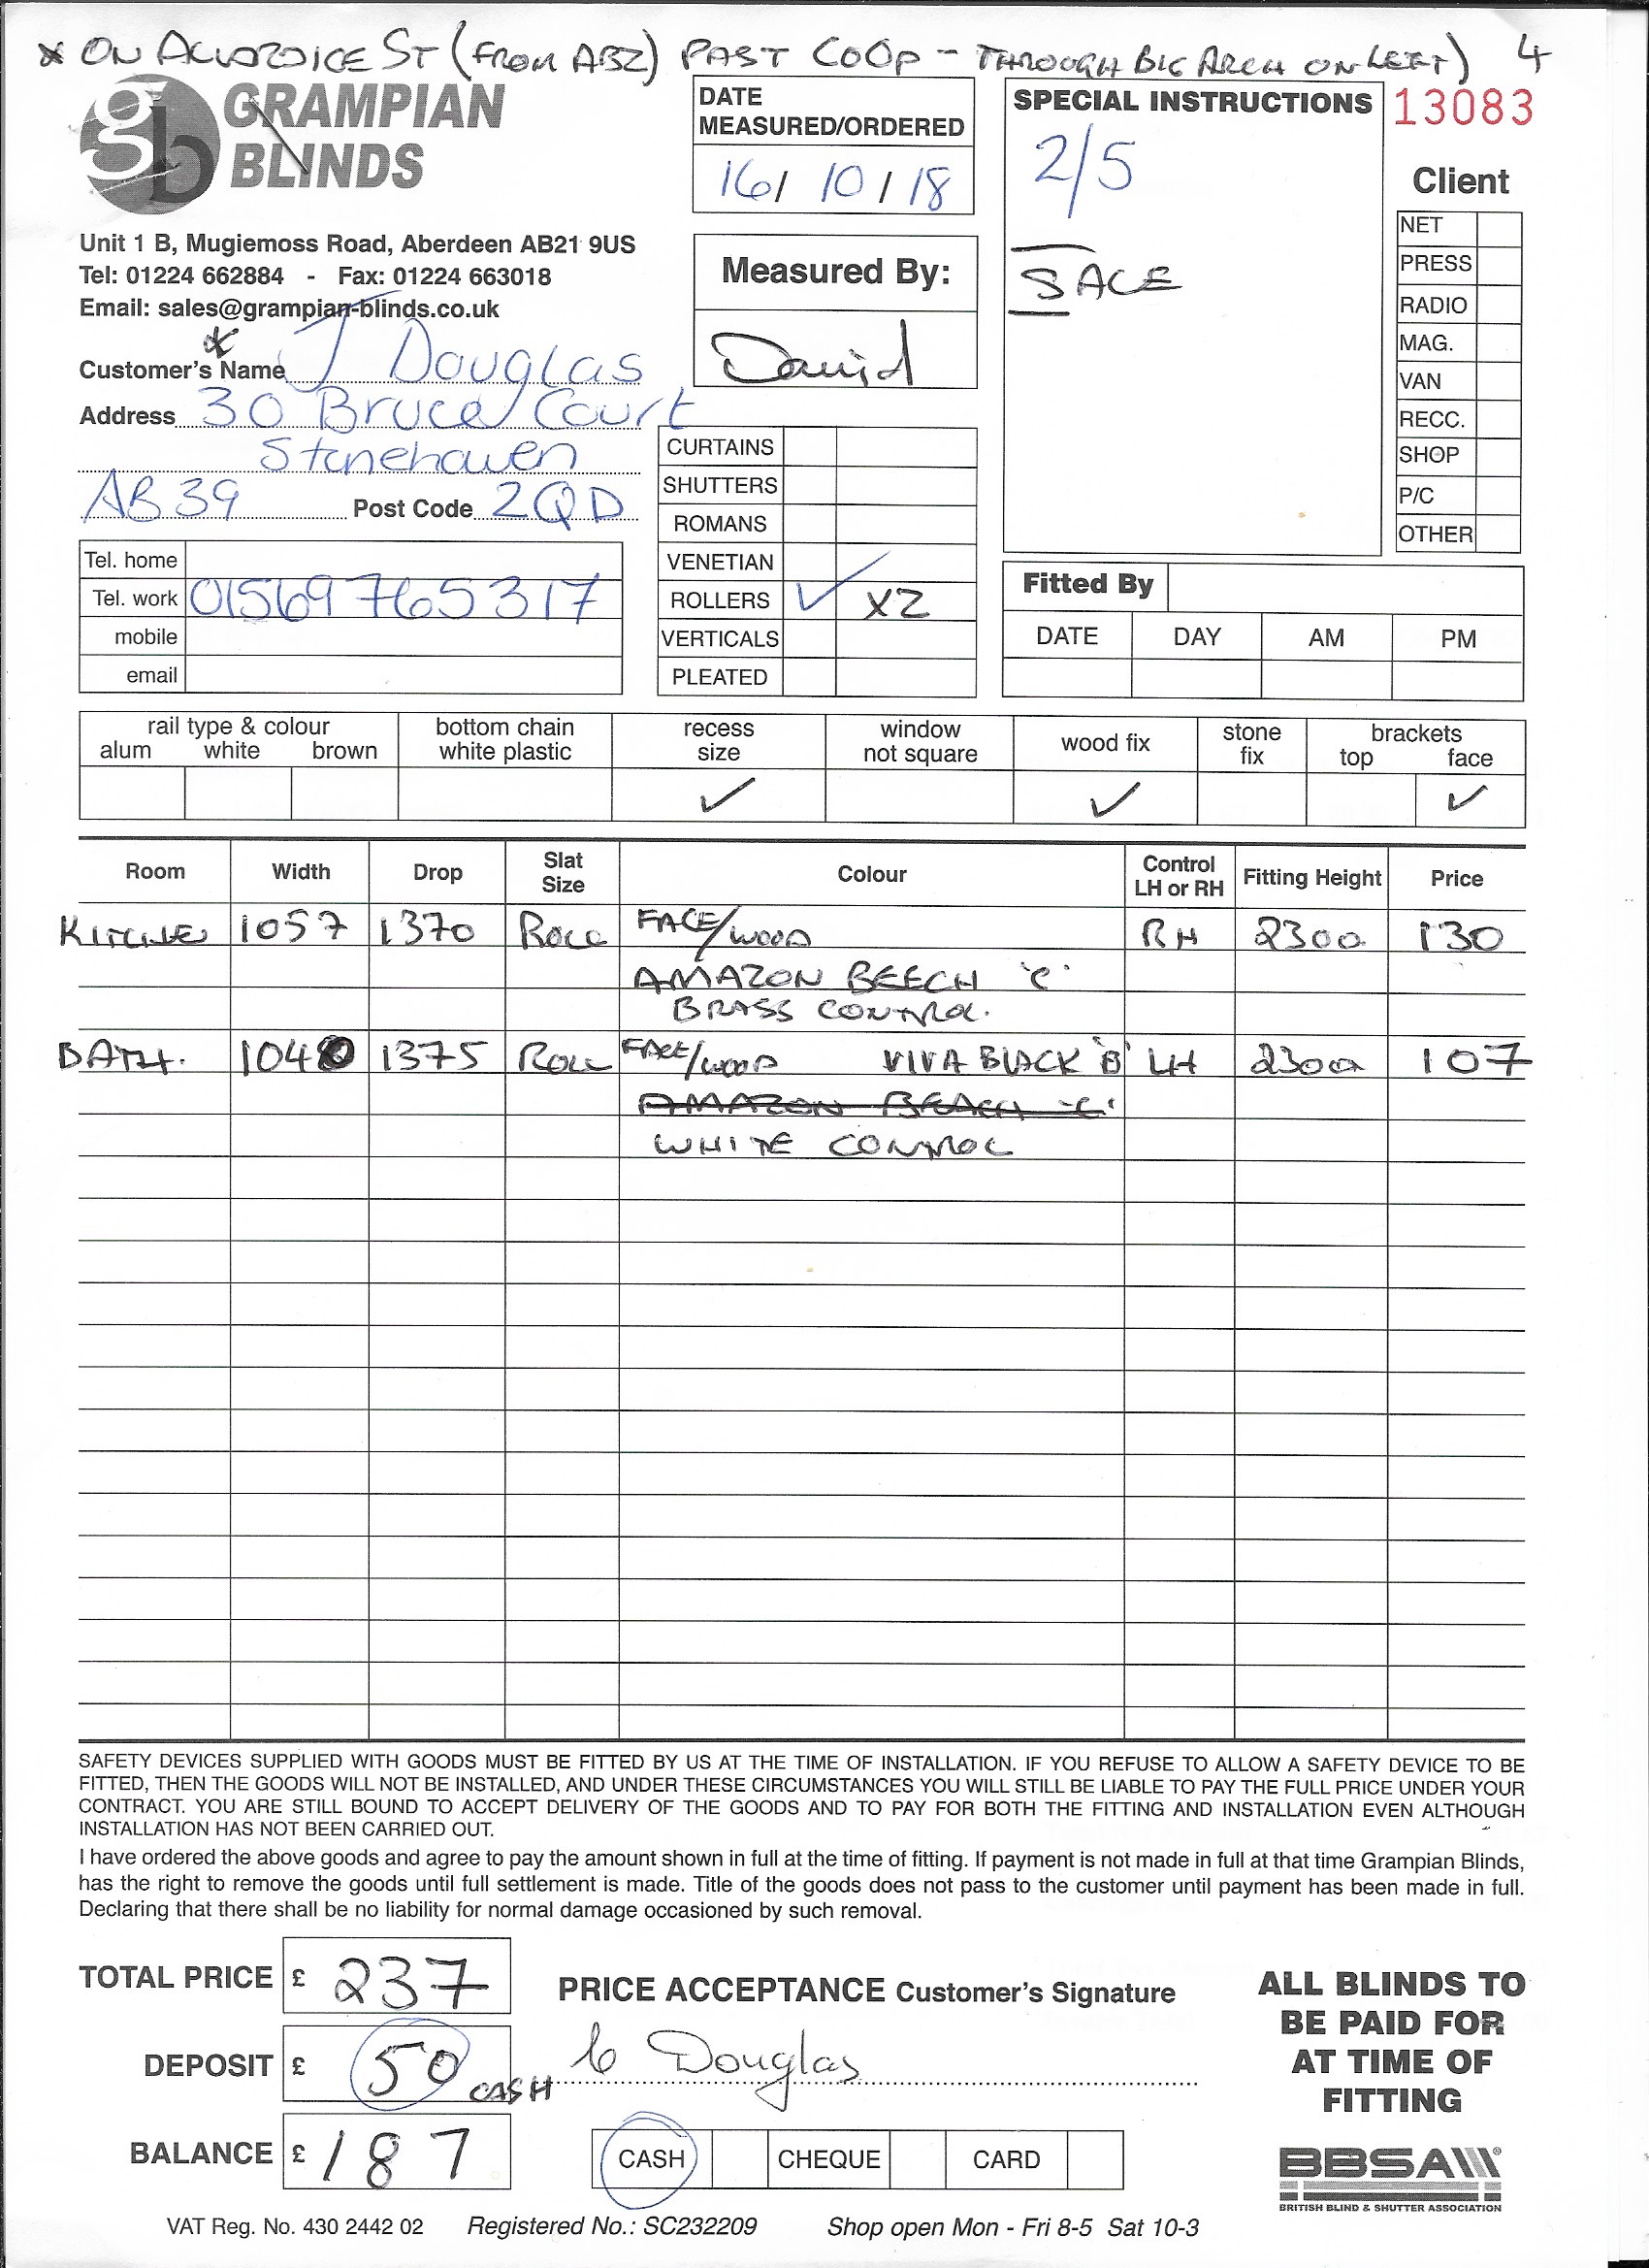 * ON ALLARDICE ST (FROM ABZ) PAST COOP - THROUGH BIG ARCH ON LEFT) 4
gb GRAMPIAN
BLINDS
Unit 1 B, Mugiemoss Road, Aberdeen AB21 9US
Tel: 01224 662884 - Fax: 01224 663018
Email: sales@grampian-blinds.co.uk
*
Customer's Name J Douglas
Address 30 Bruce Court
Stonehaven
AB39 Post Code 2QD
Tel. home
Tel. work 01569 765317
mobile
email
DATE
MEASURED/ORDERED
16/ 10 / 18
Measured By:
David
CURTAINS
SHUTTERS
ROMANS
VENETIAN
ROLLERS ✓ X2
VERTICALS
PLEATED
SPECIAL INSTRUCTIONS
2/5
SALE
13083
Client
NET
PRESS
RADIO
MAG.
VAN
RECC.
SHOP
P/C
OTHER
Fitted By
DATE DAY AM PM
rail type & colour
alum white brown
bottom chain
white plastic
recess
size
✓
window
not square
wood fix
✓
stone
fix
brackets
top face
✓
Room Width Drop Slat Size Colour Control LH or RH Fitting Height Price
KITCHEN 1057 1370 ROLL FACE/WOOD RH 2300 130
AMAZON BEECH 'C'
BRASS CONTROL.
BATH. 1040 1375 ROLL FACE/WOOD VIVA BLACK 'B' LH 2300 107
AMAZON BEACH 'C'
WHITE CONTROL
SAFETY DEVICES SUPPLIED WITH GOODS MUST BE FITTED BY US AT THE TIME OF INSTALLATION. IF YOU REFUSE TO ALLOW A SAFETY DEVICE TO BE
FITTED, THEN THE GOODS WILL NOT BE INSTALLED, AND UNDER THESE CIRCUMSTANCES YOU WILL STILL BE LIABLE TO PAY THE FULL PRICE UNDER YOUR
CONTRACT. YOU ARE STILL BOUND TO ACCEPT DELIVERY OF THE GOODS AND TO PAY FOR BOTH THE FITTING AND INSTALLATION EVEN ALTHOUGH
INSTALLATION HAS NOT BEEN CARRIED OUT.
I have ordered the above goods and agree to pay the amount shown in full at the time of fitting. If payment is not made in full at that time Grampian Blinds,
has the right to remove the goods until full settlement is made. Title of the goods does not pass to the customer until payment has been made in full.
Declaring that there shall be no liability for normal damage occasioned by such removal.
TOTAL PRICE £ 237
DEPOSIT £ 50 CASH
BALANCE £ 187
PRICE ACCEPTANCE Customer's Signature
Douglas
CASH CHEQUE CARD
ALL BLINDS TO
BE PAID FOR
AT TIME OF
FITTING
BBSA
BRITISH BLIND & SHUTTER ASSOCIATION
VAT Reg. No. 430 2442 02 Registered No.: SC232209 Shop open Mon - Fri 8-5 Sat 10-3